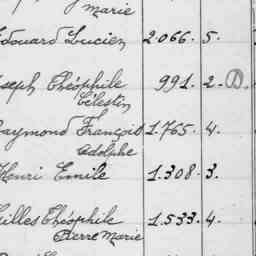 Marie
Edouard Lucien 2066. 5.
Joseph Théophile 991. 2. D.
Célestin
Raymond François 1.765. 4.
Adolphe
Henri Emile 1.308. 3.
Gilles Théophile 1.533. 4.
Pierre Marie